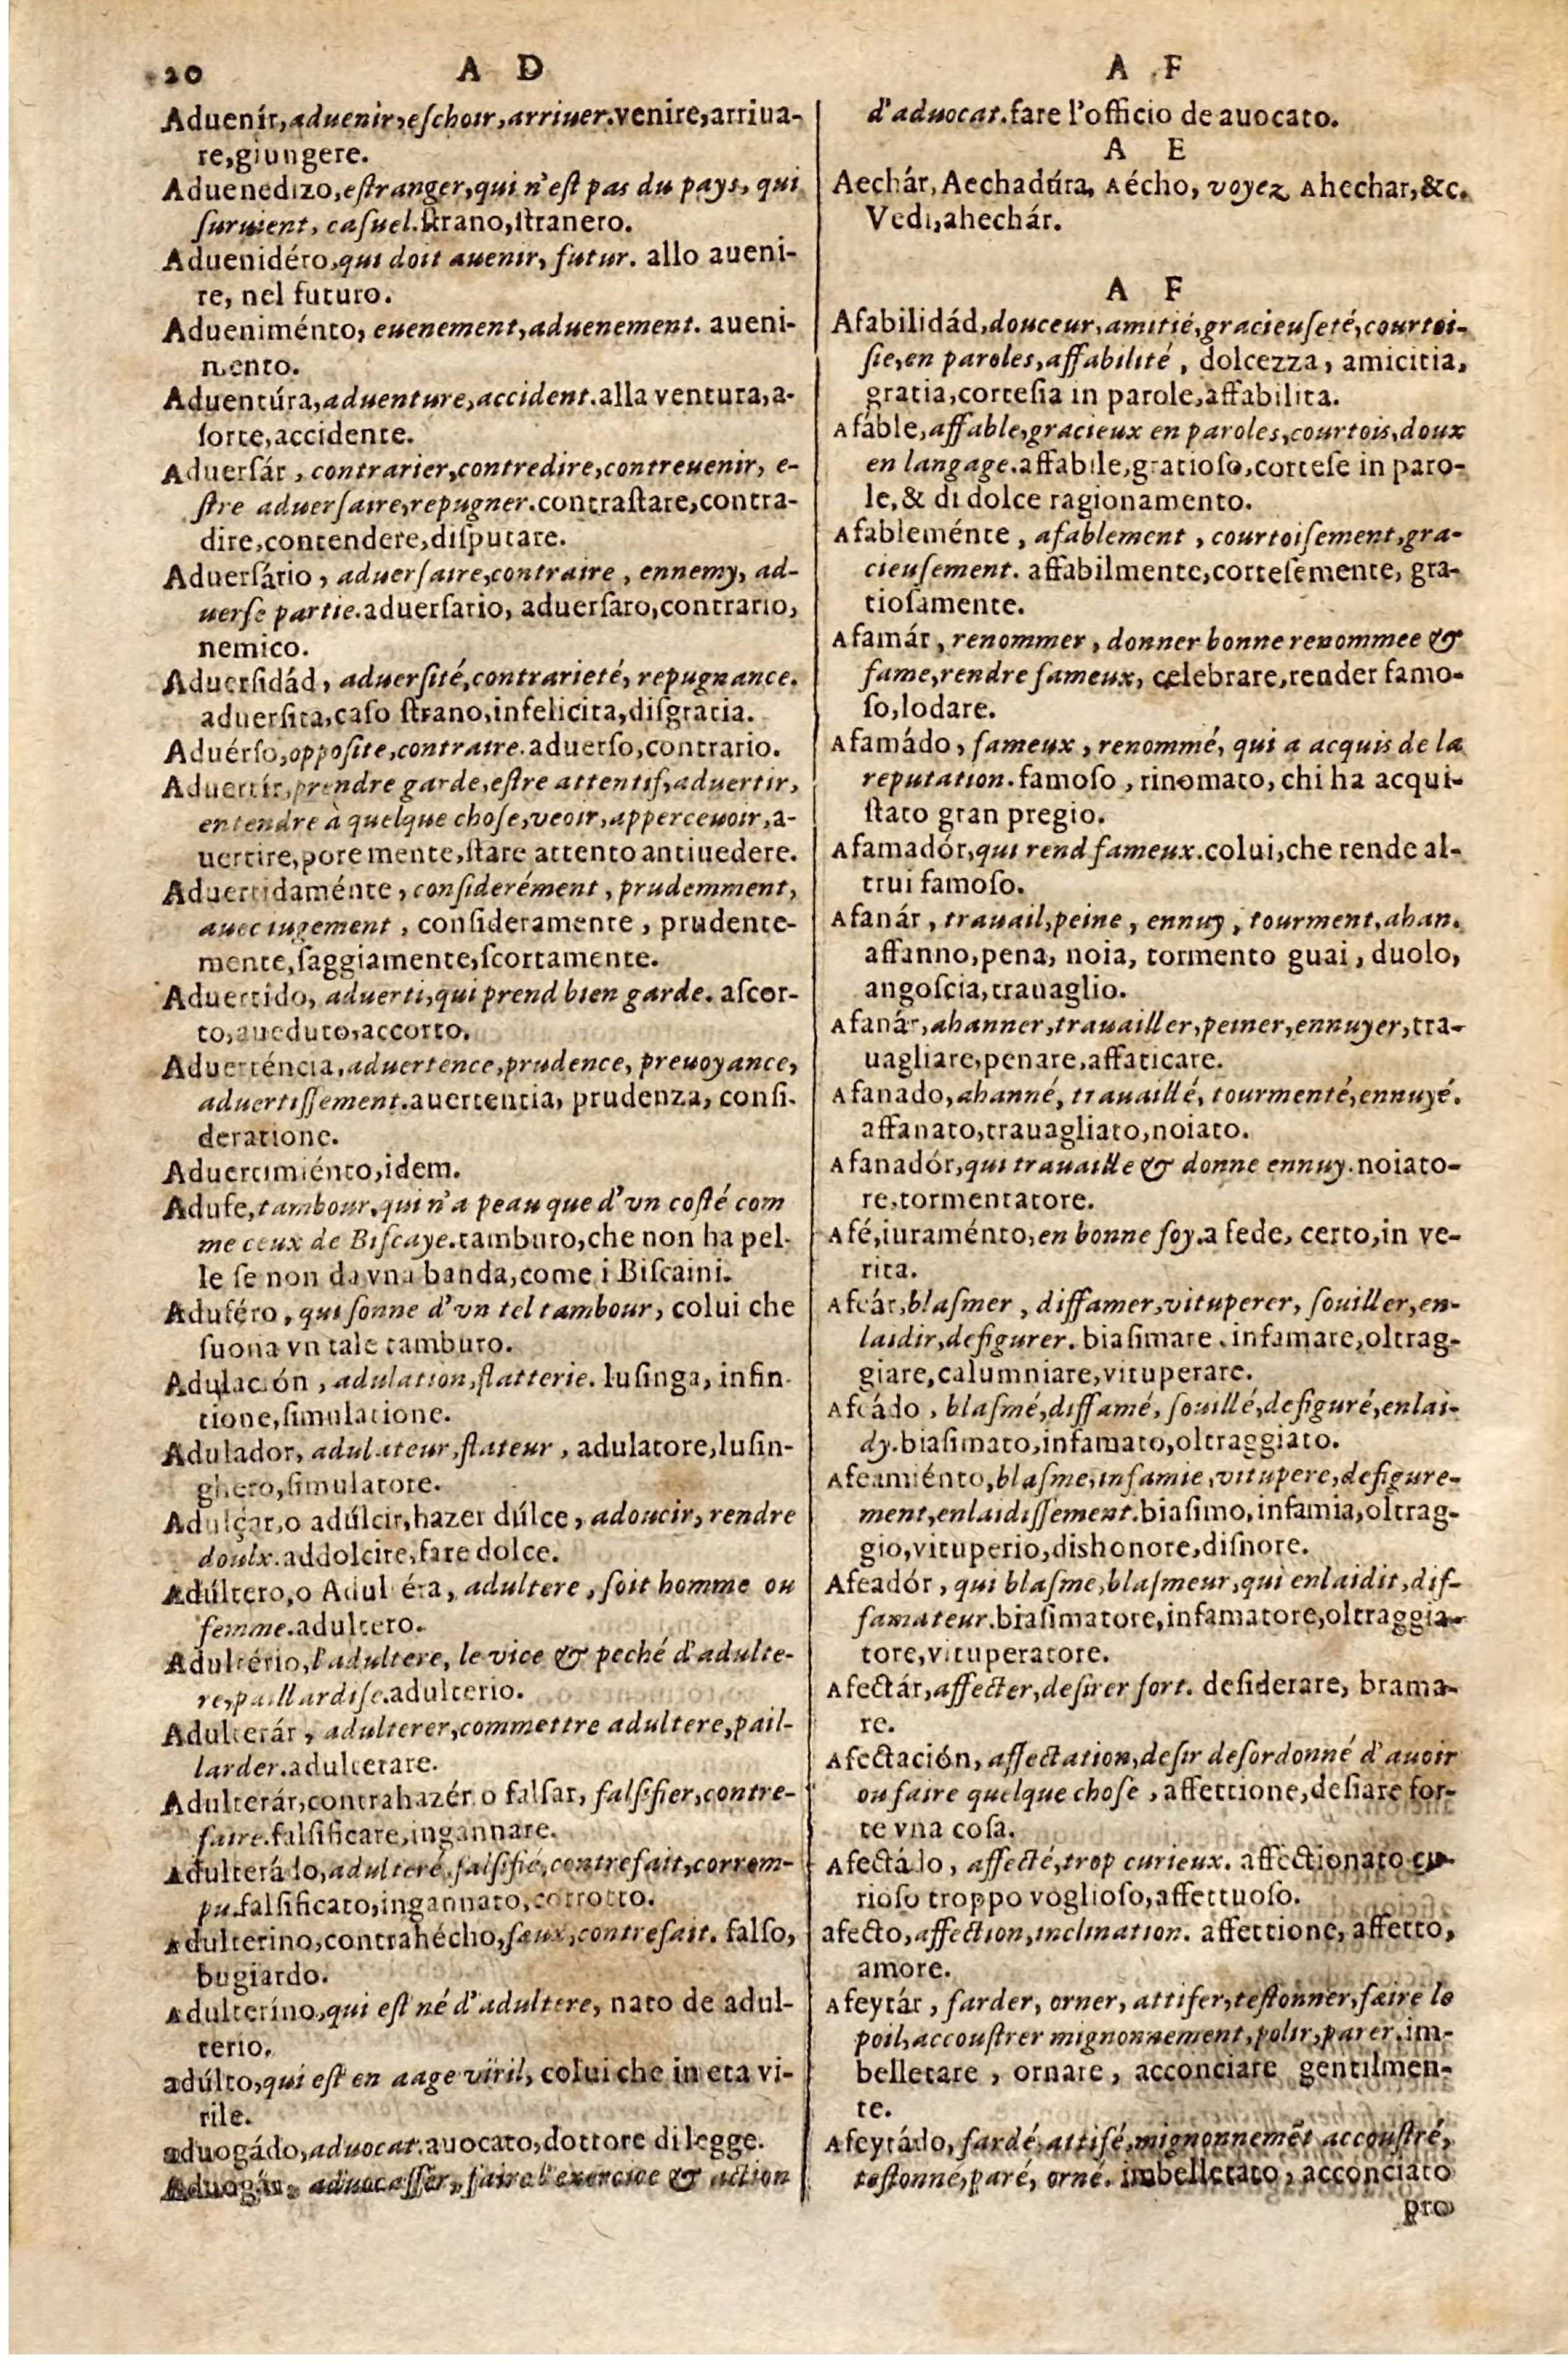 20 A D
Aduenír, aduenir, eſchoir, arriuer. venire, arriua-
re, giungere.
Aduenedizo, eſtranger, qui n'eſt pas du pays, qui
ſuruient, caſuel. ſtrano, ſtranero.
Aduenidéro, qui doit auenir, futur. allo aueni-
re, nel futuro.
Adueniménto, euenement, aduenement. aueni-
mento.
Aduentúra, aduenture, accident. alla ventura, a-
ſorte, accidente.
Aduerſár, contrarier, contredire, contreuenir, e-
ſtre aduerſaire, repugner. contraſtare, contra-
dire, contendere, diſputare.
Aduerſário, aduerſaire, contraire, ennemy, ad-
uerſe partie. aduerſario, aduerſaro, contrario,
nemico.
Aduerſidád, aduerſité, contrarieté, repugnance.
aduerſita, caſo ſtrano, infelicita, diſgratia.
Aduérſo, oppoſite, contraire. aduerſo, contrario.
Aduertír, prendre garde, eſtre attentif, aduertir,
entendre à quelque choſe, veoir, apperceuoir, a-
uertire, pore mente, ſtare attento antiuedere.
Aduertidaménte, conſiderément, prudemment,
auec iugement, conſideramente, prudente-
mente, ſaggiamente, ſcortamente.
Aduertído, aduerti, qui prend bien garde. aſcor-
to, aueduto, accorto.
Aduerténcia, aduertence, prudence, preuoyance,
aduertiſſement. auertentia, prudenza, conſi-
deratione.
Aduertimiénto, idem.
Adufe, tambour, qui n'a peau que d'vn coſté com
me ceux de Biſcaye. tamburo, che non ha pel-
le ſe non da vna banda, come i Biſcaini.
Aduféro, qui ſonne d'vn tel tambour, colui che
ſuona vn tale tamburo.
Adulación, adulation, flatterie. luſinga, infin-
tione, ſimulatione.
Adulador, adulateur, flateur, adulatore, luſin-
ghero, ſimulatore.
Adulçar, o adúlcir, hazer dúlce, adoucir, rendre
doulx. addolcire, fare dolce.
Adúltero, o Adultéra, adultere, ſoit homme ou
femme. adultero.
Adultério, l'adultere, le vice & peché d'adulte-
re, paillardiſe. adulterio.
Adulterár, adulterer, commettre adultere, pail-
larder. adulterare.
Adulterár, contrahazér o falſar, falſifier, contre-
faire. falſificare, ingannare.
Adulterádo, adulteré, falſifié, contrefait, corrom-
pu. falſificato, ingannato, corrotto.
Adulterino, contrahécho, faux, contrefait. falſo,
bugiardo.
Adulteríno, qui eſt né d'adultere, nato de adul-
terio.
adúlto, qui eſt en aage viril, colui che in eta vi-
rile.
aduogádo, aduocat. auocato, dottore di legge.
Aduogár, aduocaſſer, faire l'exercice & action
A F
d'aduocat. fare l'officio de auocato.
A E
Aechár, Aechadúra, Aécho, voyez Ahechar, &c.
Vedi, ahechár.
A F
Afabilidád, douceur, amitié, gracieuſeté, courtoi-
ſie, en paroles, affabilité, dolcezza, amicitia,
gratia, corteſia in parole, affabilita.
Afáble, affable, gracieux en paroles, courtois, doux
en langage. affabile, gratioſo, corteſe in paro-
le, & di dolce ragionamento.
Afableménte, afablement, courtoiſement, gra-
cieuſement. affabilmente, corteſemente, gra-
tioſamente.
Afamár, renommer, donner bonne renommee &
fame, rendre fameux, celebrare, render famo-
ſo, lodare.
Afamádo, fameux, renommé, qui a acquis de la
reputation. famoſo, rinomato, chi ha acqui-
ſtato gran pregio.
Afamadór, qui rend fameux. colui, che rende al-
trui famoſo.
Afanár, trauail, peine, ennuy, tourment, ahan.
affanno, pena, noia, tormento guai, duolo,
angoſcia, trauaglio.
Afanár, ahanner, trauailler, peiner, ennuyer, tra-
uagliare, penare, affaticare.
Afanado, ahanné, trauaillé, tourmenté, ennuyé.
affanato, trauagliato, noiato.
Afanadór, qui trauaille & donne ennuy. noiato-
re, tormentatore.
Afé, iuraménto, en bonne foy. a fede, certo, in ve-
rita.
Afeár, blaſmer, diffamer, vituperer, ſouiller, en-
laidir, defigurer. biaſimare, infamare, oltrag-
giare, calumniare, vituperare.
Afeádo, blaſmé, diffamé, ſouillé, defiguré, enlai-
dy. biaſimato, infamato, oltraggiato.
Afeamiénto, blaſme, infamie, vitupere, defigure-
ment, enlaidiſſement. biaſimo, infamia, oltrag-
gio, vituperio, dishonore, diſnore.
Afeadór, qui blaſme, blaſmeur, qui enlaidit, dif-
famateur. biaſimatore, infamatore, oltraggia-
tore, vituperatore.
Afectár, affecter, deſirer fort. deſiderare, brama-
re.
Afectación, affectation, deſir deſordonné d'auoir
ou faire quelque choſe, affettione, deſiare for-
te vna coſa.
Afectádo, affecté, trop curieux. affectionato cu-
rioſo troppo voglioſo, affettuoſo.
afecto, affection, inclination. affettione, affetto,
amore.
Afeytár, farder, orner, attifer, teſtonner, faire le
poil, accouſtrer mignonnement, polir, parer. im-
belletare, ornare, acconciare gentilmen-
te.
Afeytádo, fardé, attifé, mignonnemẽt accouſtré,
teſtonné, paré, orné. imbelletato, acconciato
pro